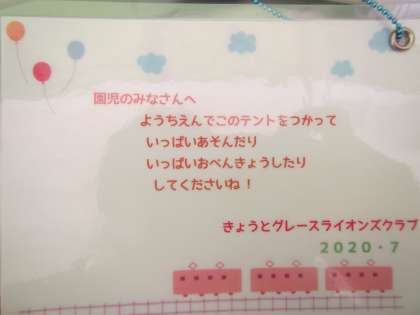 園児のみなさんへ
ようちえんでこのテントをつかって
いっぱいあそんだり
いっぱいおべんきょうしたり
してくださいね！
きょうとグレースライオンズクラブ
2020・7